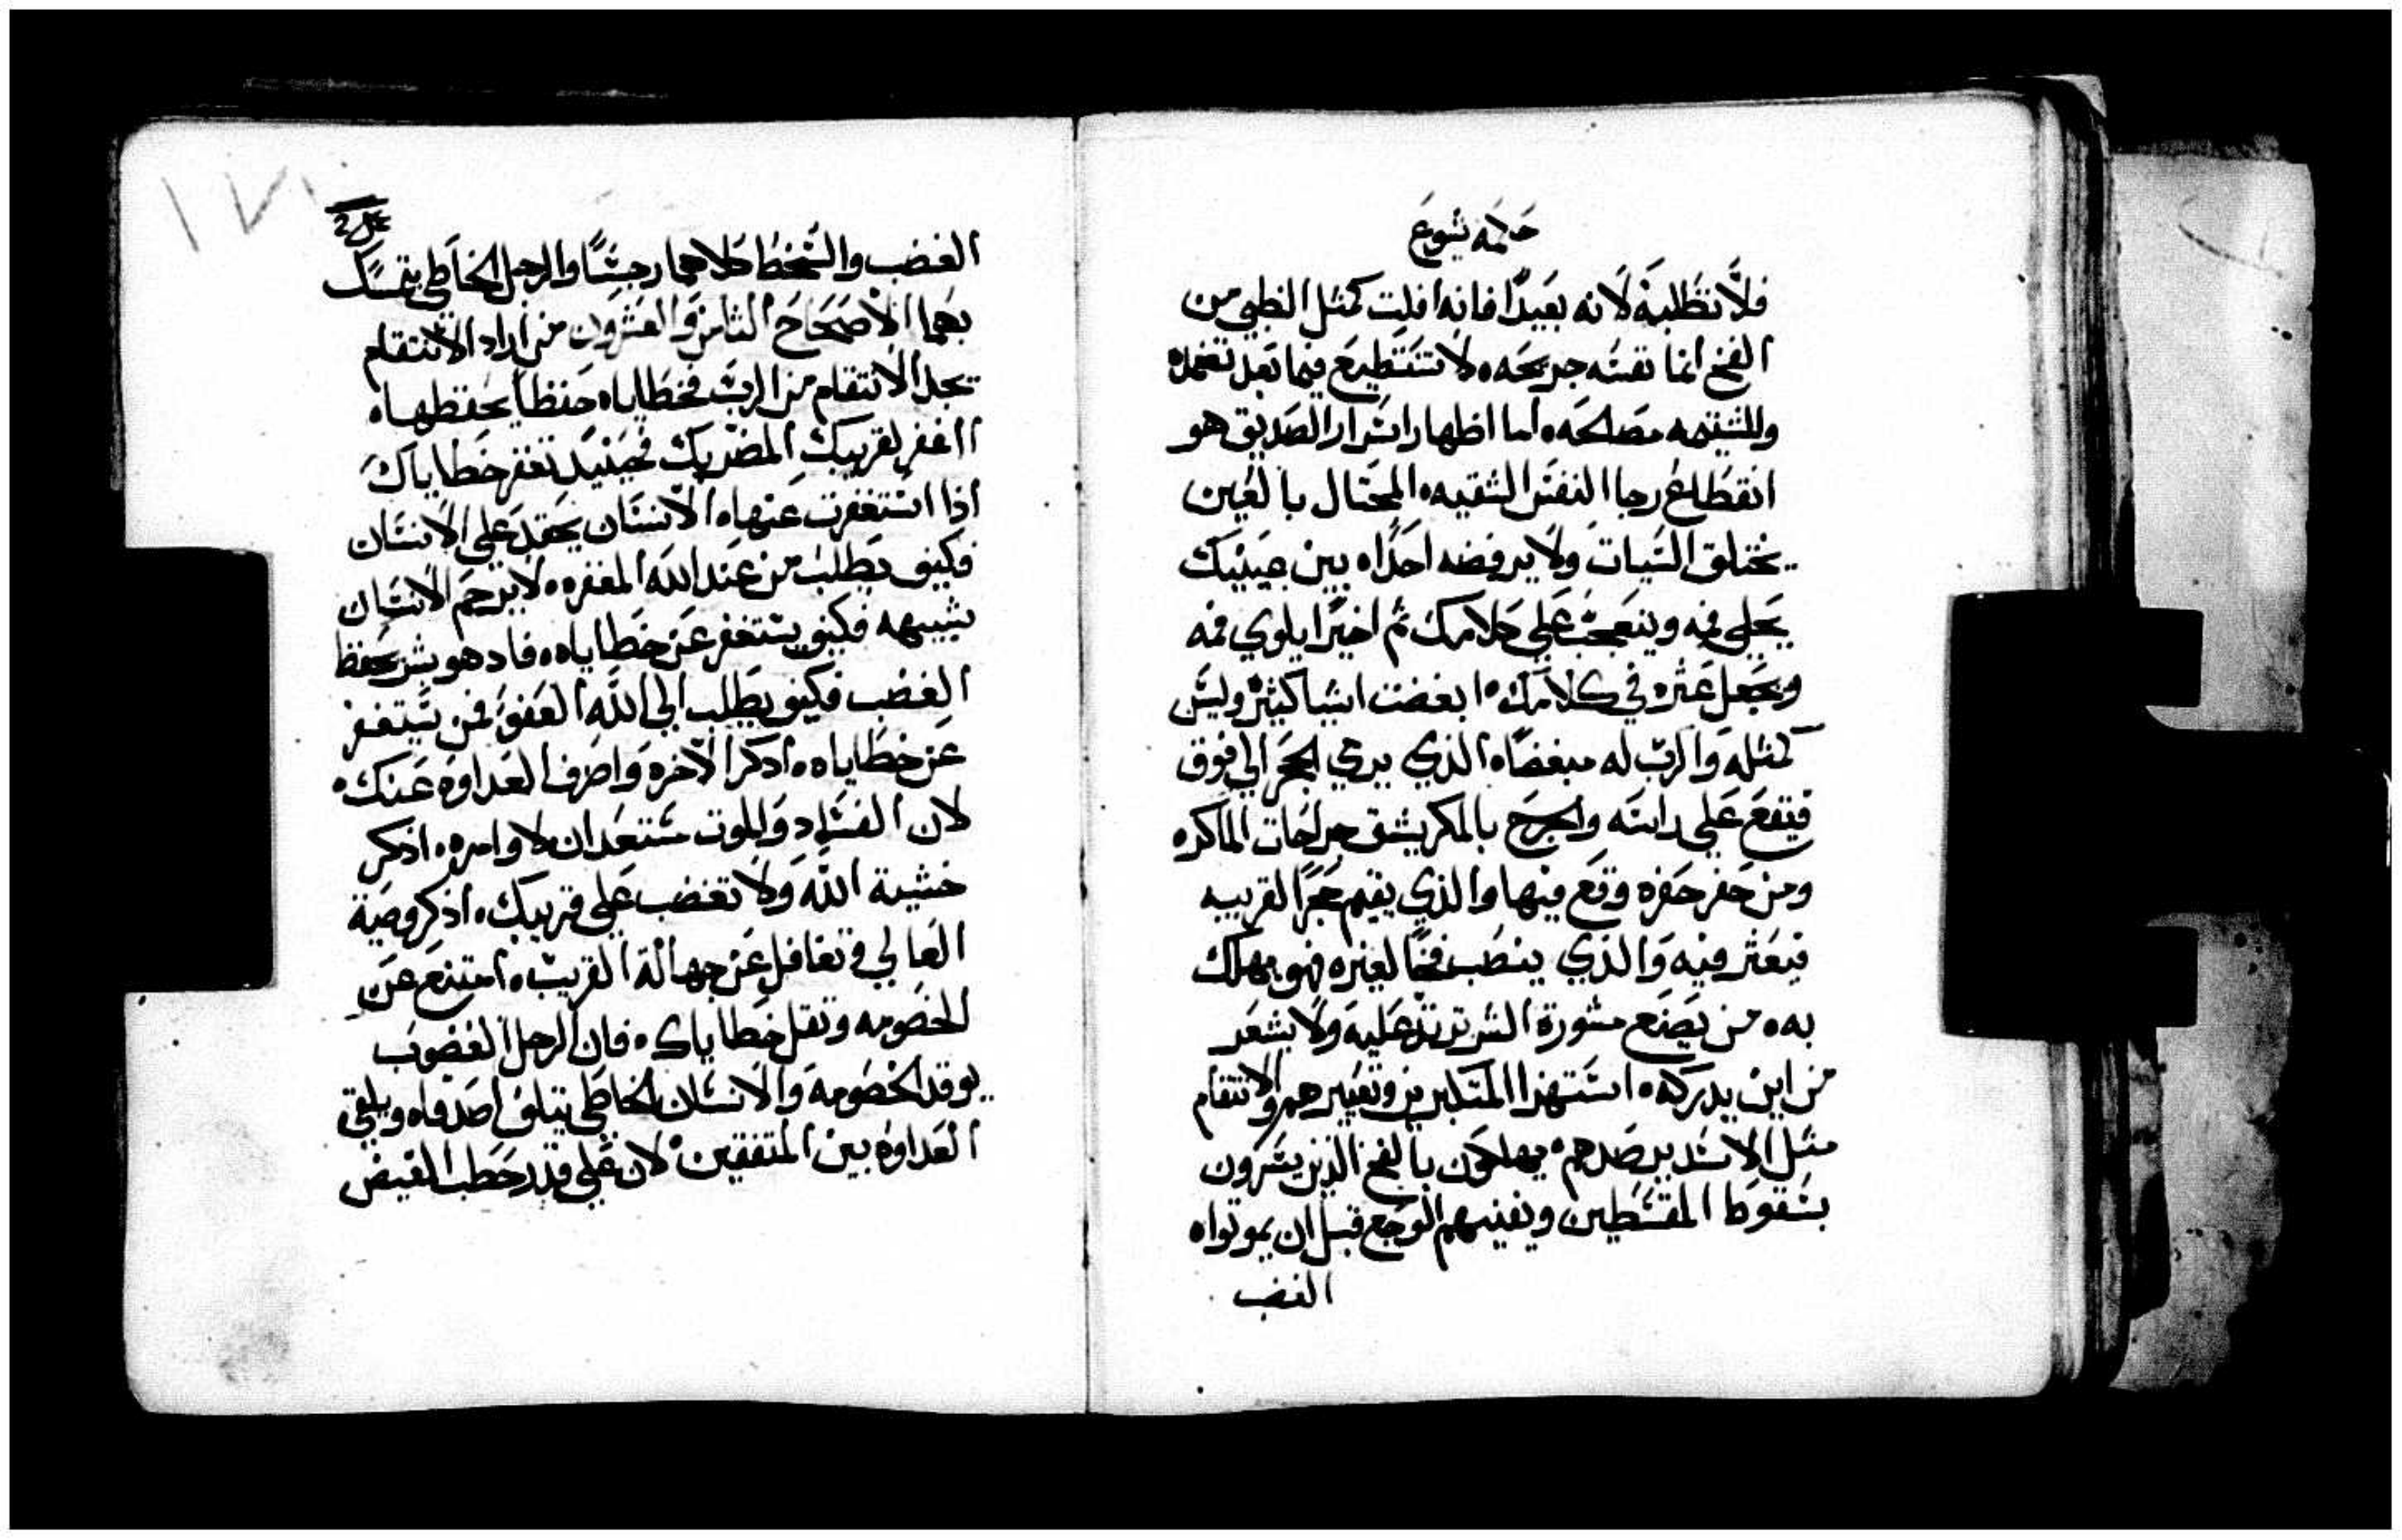 حكمه يشوع
فلا تطلبه لانه بعيدا فانه افلت كمثل الظبي من
الفخ انما نفسه جريحه ولا تستطيع فيما بعد تغمده
وللشتيمه مصالحه واما اظهار اسرار الصديق هو
انقطاع رجا النفس الشقيه المحتال بالعين
يختلق السيات ولا يرفضه احدا ه بين عينيك
يحلي فمه ويتعجب علي كلامك ثم اخيرا يلوي فمه
ويجعل عثره في كلامك ه ابغضت اشيا كثيره وليس
كمثله والرب له مبغضا ه الذي يرمي الحجر الي فوق
فيقع علي راسه والجرح بالمكر يشق جراحات الماكره
ومن حفر حفره وقع فيها والذي يقيم حجرا لقريبه
فيعثر فيه والذي ينصب فخا لغيره فهو يهلك
به ه من يصنع مشورة الشر ترتد عليه ولا يشعر
من اين يدركه ه استهزا المتكبرين وتعييرهم والانتقام
مثل الاسد يرصدهم ه يهلكون بالفخ الذين يسرون
بسقوط المقسطين ويفنيهم الوجع قبل ان يموتوا ه
الغضب
الغضب والسخط كلاهما رجسا والرجل الخاطي يتمسك
بهما الاصحاح الثامن والعشرون من اراد الانتقام
يجد الانتقام من الرب فخطاياه حفظا يحفظها ه
اغفر لقريبك المضر بك فحينيد تغفر خطاياك
اذا استغفرت عنها ه الانسان يحقد علي الانسان
فكيف يطلب من عند الله المغفره ه لا يرحم الانسان
شبيهه فكيف يستغفر عن خطاياه ه فاد هو بشر يحفظ
الغضب فكيف يطلب الي الله العفو فمن يستغفر
عن خطاياه ه ادكر الاخره واصرف العداوه عنك ه
لان الفساد والموت مستعدان لاوامره ه اذكر
خشية الله ولا تغضب علي قريبك ه اذكر وصية
العالي وتغافل عن جهالة القريب ه امتنع عن
الخصومه وتقل خطاياك ه فان الرجل الغضوب
يوقد الخصومه والانسان الخاطي يتلف اصدقاه ويلقي
العداوه بين المتفقين لان علي قدر حطب الغيض